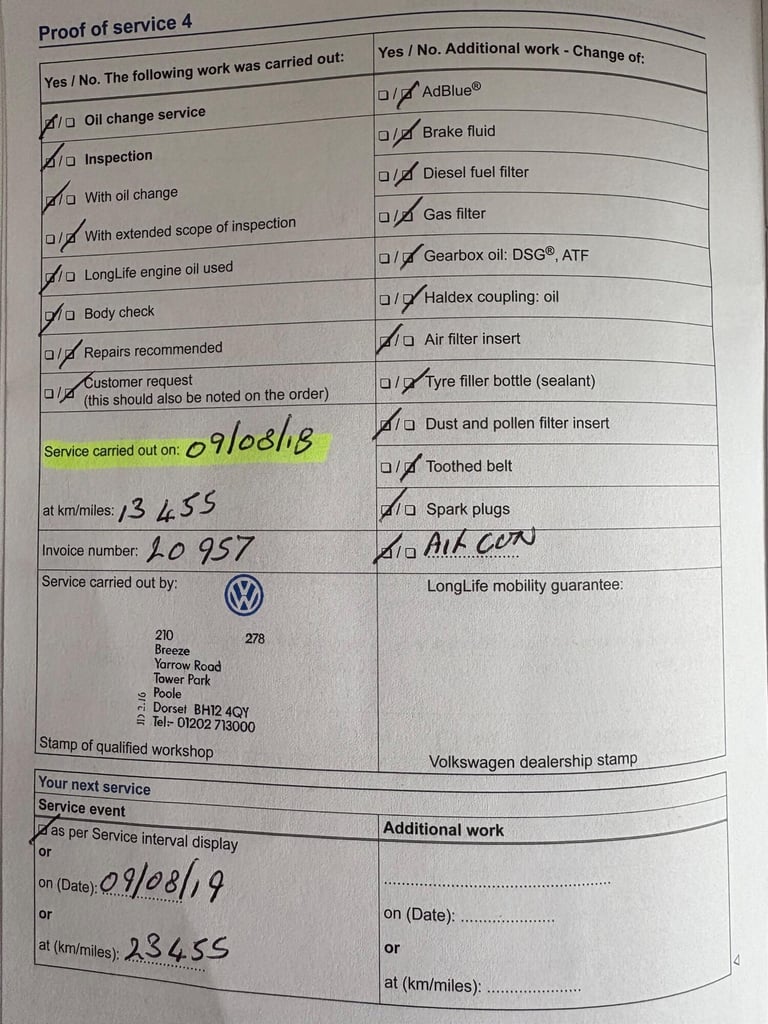 Proof of service 4
Yes / No. The following work was carried out:
Oil change service
Inspection
With oil change
With extended scope of inspection
LongLife engine oil used
Body check
Repairs recommended
Customer request
(this should also be noted on the order)
Service carried out on: 09/08/18
at km/miles: 13 455
Invoice number: 20 957
Yes / No. Additional work - Change of:
AdBlue®
Brake fluid
Diesel fuel filter
Gas filter
Gearbox oil: DSG®, ATF
Haldex coupling: oil
Air filter insert
Tyre filler bottle (sealant)
Dust and pollen filter insert
Toothed belt
Spark plugs
AIR CON
Service carried out by:
VW
210 278
Breeze
Yarrow Road
Tower Park
Poole
Dorset BH12 4QY
Tel:- 01202 713000
Stamp of qualified workshop
LongLife mobility guarantee:
Volkswagen dealership stamp
Your next service
Service event
as per Service interval display
or
on (Date): 09/08/19
or
at (km/miles): 23455
Additional work
on (Date):
or
at (km/miles):